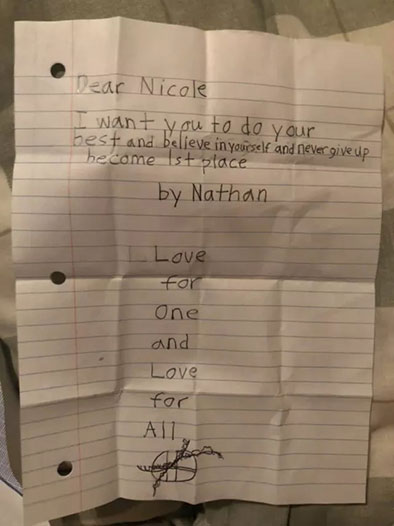 Dear Nicole
I want you to do your
best and believe in yourself and never give up
become 1st place
by Nathan
Love
for
One
and
Love
for
All